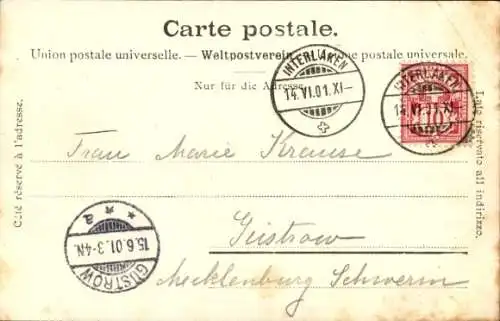 Carte postale.
Union postale universelle. — Weltpostverein. — Unione postale universale.
Nur für die Adresse.
INTERLAKEN
14.VI.01.XI–
INTERLAKEN
14.VI.01.XI–
10
Côté réservé à l'adresse.
Lato riservato all indirizzo.
Frau Marie Krause
Güstrow
Mecklenburg Schwerin
GÜSTROW
15.6.01.3-4N.
* * a